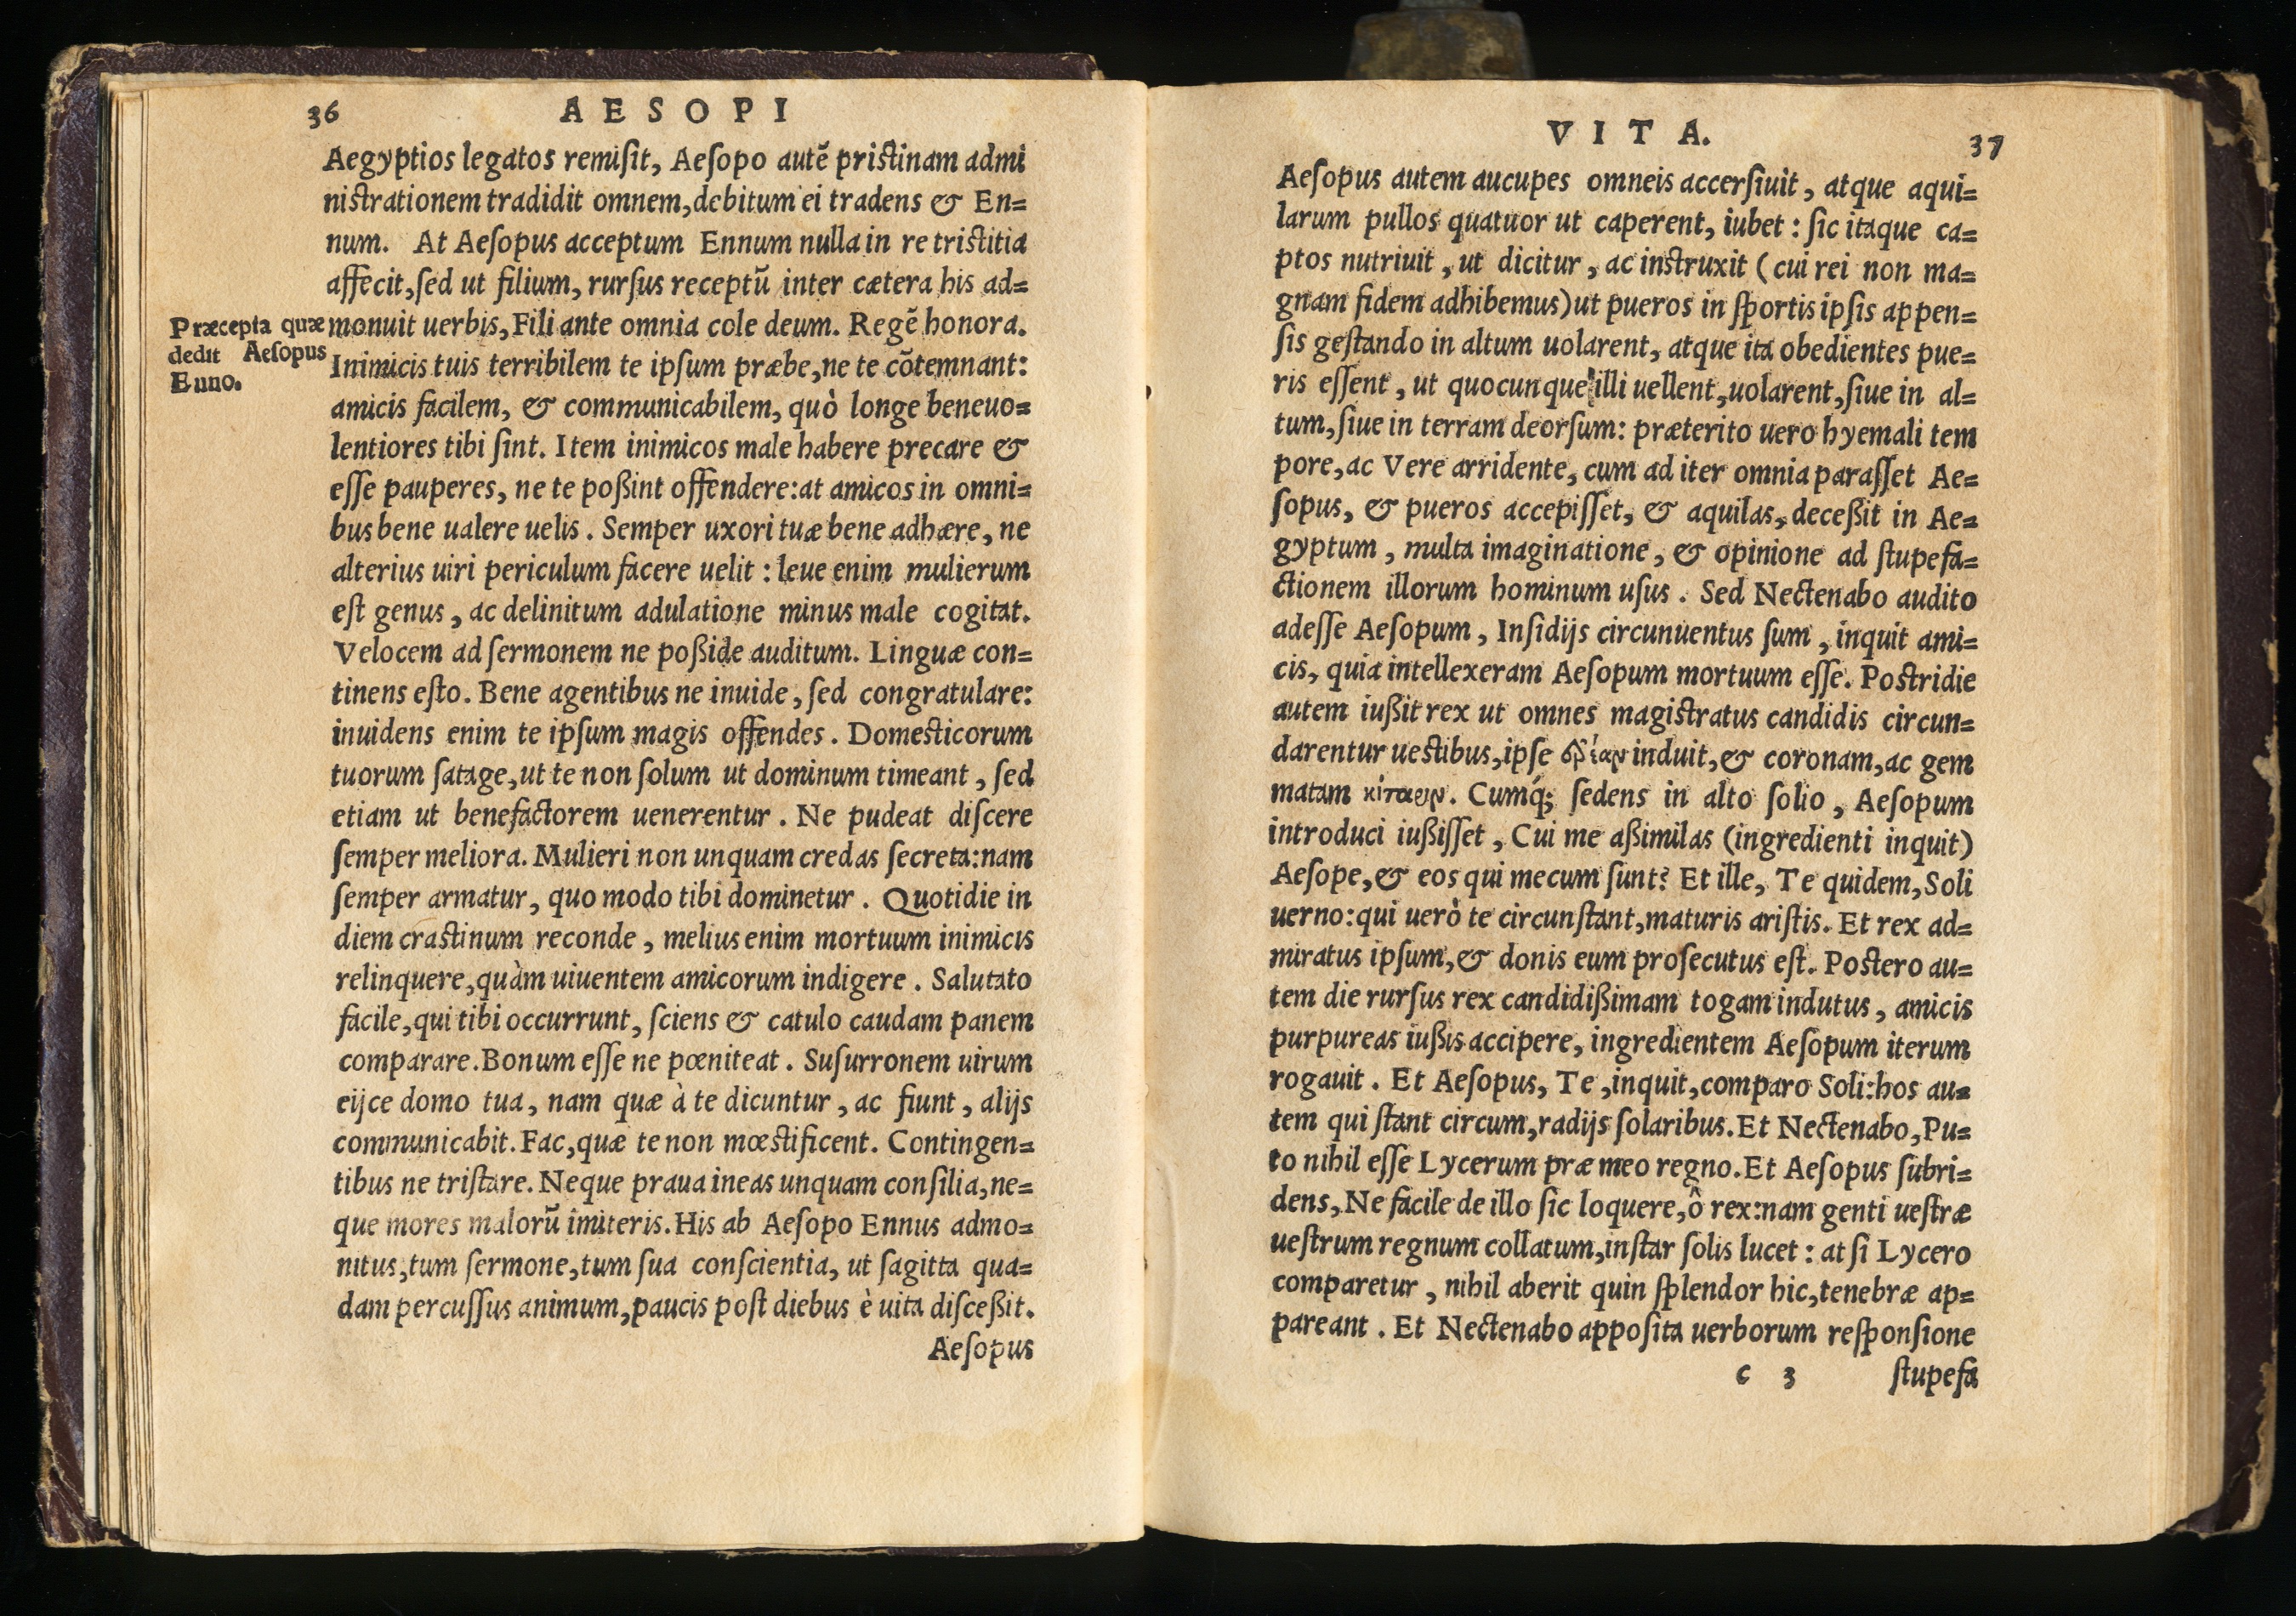 36 AESOPI
Aegyptios legatos remisit, Aesopo autẽ pristinam admi
nistrationem tradidit omnem, debitum ei tradens & En=
num. At Aesopus acceptum Ennum nulla in re tristitia
affecit, sed ut filium, rursus receptũ inter cætera his ad=
Præcepta quæ
dedit Aesopus
Enno.
monuit uerbis, Fili ante omnia cole deum. Regẽ honora.
Inimicis tuis terribilem te ipsum præbe, ne te cõtemnant:
amicis facilem, & communicabilem, quò longe beneuo=
lentiores tibi sint. Item inimicos male habere precare &
esse pauperes, ne te poßint offendere: at amicos in omni=
bus bene ualere uelis. Semper uxori tuæ bene adhære, ne
alterius uiri periculum facere uelit: leue enim mulierum
est genus, ac delinitum adulatione minus male cogitat.
Velocem ad sermonem ne poßide auditum. Linguæ con=
tinens esto. Bene agentibus ne inuide, sed congratulare:
inuidens enim te ipsum magis offendes. Domesticorum
tuorum satage, ut te non solum ut dominum timeant, sed
etiam ut benefactorem uenerentur. Ne pudeat discere
semper meliora. Mulieri non unquam credas secreta: nam
semper armatur, quo modo tibi dominetur. Quotidie in
diem crastinum reconde, melius enim mortuum inimicis
relinquere, quàm uiuentem amicorum indigere. Salutato
facile, qui tibi occurrunt, sciens & catulo caudam panem
comparare. Bonum esse ne pœniteat. Susurronem uirum
eijce domo tua, nam quæ à te dicuntur, ac fiunt, alijs
communicabit. Fac, quæ te non mœstificent. Contingen=
tibus ne tristare. Neque praua ineas unquam consilia, ne=
que mores malorũ imiteris. His ab Aesopo Ennus admo=
nitus, tum sermone, tum sua conscientia, ut sagitta qua=
dam percussus animum, paucis post diebus è uita disceßit.
Aesopus
VITA. 37
Aesopus autem aucupes omneis accersiuit, atque aqui=
larum pullos quatuor ut caperent, iubet: sic itaque ca=
ptos nutriuit, ut dicitur, ac instruxit (cui rei non ma=
gnam fidem adhibemus) ut pueros in sportis ipsis appen=
sis gestando in altum uolarent, atque ita obedientes pue=
ris essent, ut quocunque illi uellent, uolarent, siue in al=
tum, siue in terram deorsum: præterito uero hyemali tem
pore, ac Vere arridente, cum ad iter omnia parasset Ae=
sopus, & pueros accepisset, & aquilas, deceßit in Ae=
gyptum, multa imaginatione, & opinione ad stupefa=
ctionem illorum hominum usus. Sed Nectenabo audito
adesse Aesopum, Insidijs circunuentus sum, inquit ami=
cis, quia intellexeram Aesopum mortuum esse. Postridie
autem iußit rex ut omnes magistratus candidis circun=
darentur uestibus, ipse induit, & coronam, ac gem
matam κίταριν. Cumq́; sedens in alto solio, Aesopum
introduci iußisset, Cui me aßimilas (ingredienti inquit)
Aesope, & eos qui mecum sunt? Et ille, Te quidem, Soli
uerno: qui uerò te circunstant, maturis aristis. Et rex ad=
miratus ipsum, & donis eum prosecutus est. Postero au=
tem die rursus rex candidißimam togam indutus, amicis
purpureas iußis accipere, ingredientem Aesopum iterum
rogauit. Et Aesopus, Te, inquit, comparo Soli: hos au=
tem qui stant circum, radijs solaribus. Et Nectenabo, Pu=
to nihil esse Lycerum præ meo regno. Et Aesopus subri=
dens, Ne facile de illo sic loquere, ô rex: nam genti uestræ
uestrum regnum collatum, instar solis lucet: at si Lycero
comparetur, nihil aberit quin splendor hic, tenebræ ap=
pareant. Et Nectenabo apposita uerborum responsione
c 3 stupefa